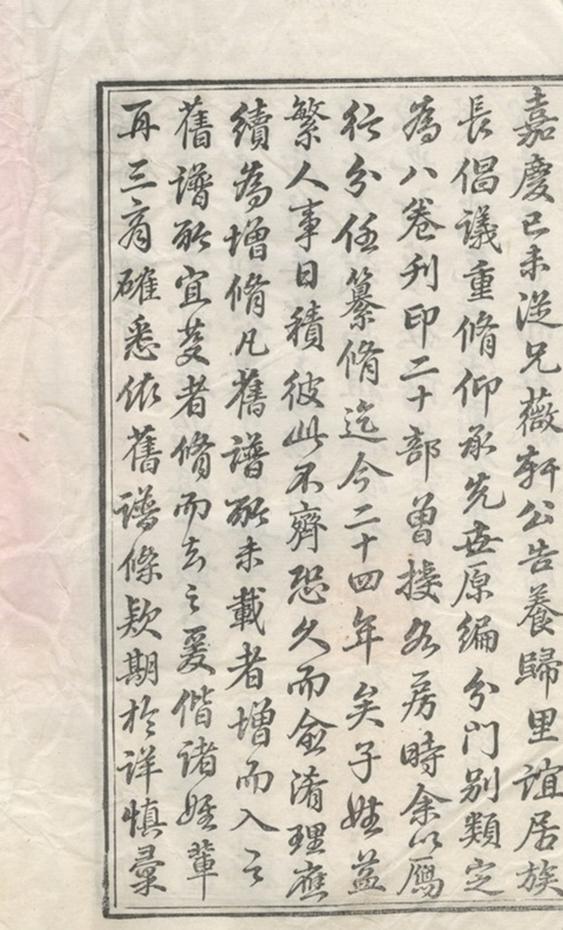 嘉慶己未從兄薇軒公告養歸里誼居族
長倡議重脩仰承先世原編分門別類定
為八卷刊印二十部曾授各房時余以鴈
行分任纂脩迄今二十四年矣子姓益
繁人事日積彼此不齊恐久而愈淆理應
續為增脩凡舊譜所未載者增而入之
舊譜所宜芟者脩而去之爰偕諸姪輩
再三商確悉依舊譜條款期於詳慎彙